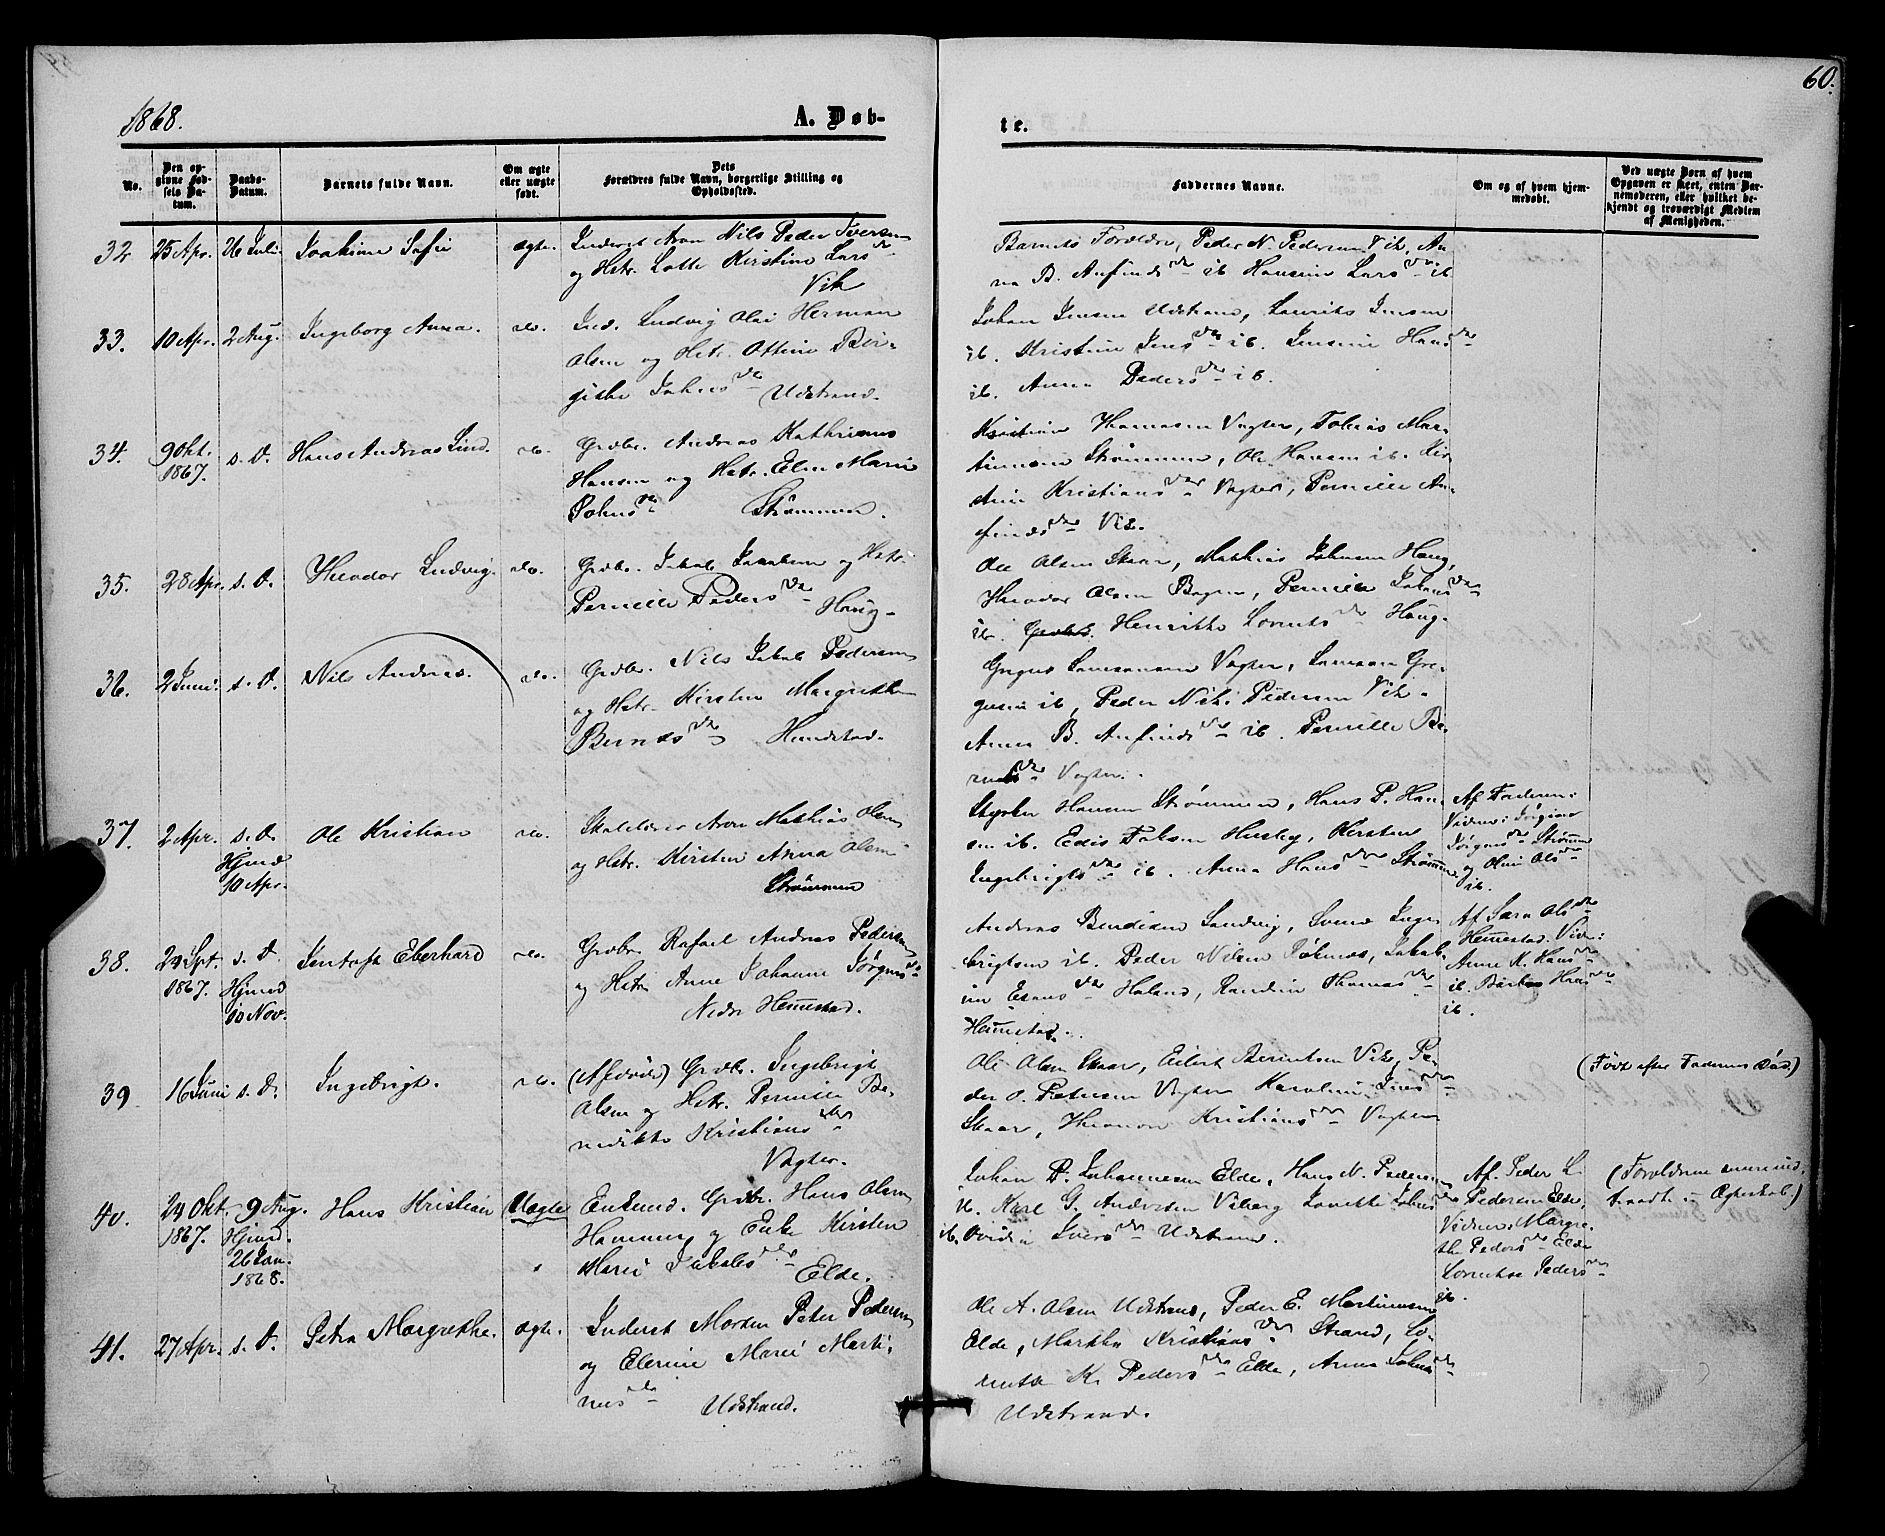 60.
1868.
A. Døb-
te.
No.
Den op-
givne Fød-
sels Da-
tum.
Daabs-
Datum.
Barnets fulde Navn.
Om ægte
eller uægte
født.
Dets
Forældres fulde Navn, borgerlige Stilling og
Opholdssted.
Faddernes Navne.
Om og af hvem hjem-
medøbt.
Ved uægte Børn af hvem
Opgaven er skeet, enten Bar-
nemoderen, eller hvilket be-
kjendt og troværdigt Medlem
af Menigheden.
32 25 Apr. 26 Juli Joakime Sofie ægte. Inderst Aron Nils Peder Iversen
og Hstr. Lotte Kirstine Lars dr
Vik
Barnets Forældre, Peder N. Pedersen Vik, An-
na B. Anfinds dr ib Hansine Lars dr ib
33. 10 Apr. 2 Aug. Ingeborg Anna. do. Ind. Ludvig Olai Herman
Olsen og Hstr. Ottine Bir-
githe Johns dr Udstrand.
Johan Jensen Udstrand, Laurits Jensen
ib. Kristine Jens dr ib. Jensine Hans dr
ib. Anna Peders dr ib.
34. 9 Okt.
1867. s. D. Hans Andreas Lind. do. Grdbr. Andreas Kathrinus
Hansen og Hstr. Elen Marie
Johns dr Strømmen.
Kristian Thomasen Vagten, Tobias Mar-
tinusen Strømmen, Ole Hansen ib. Kir-
stine Kristians dr Vagten, Pernille An-
finds dr Vik.
35. 28 Apr. s. D. Theodor Ludvig. do. Grdbr. Jakob Jakobsen og Hstr.
Pernille Peders dr Haug.
Ole Olsen Skaar, Mathias Johnsen Haug,
Theodor Olsen Bogen, Pernille Johns dr
ib. Henrikke Lorents dr Haug.
36. 2 Juni. s. D. Nils Andreas. do. Grdbr. Nils Jakob Pedersen
og Hstr. Kirsten Margrethe
Bernts dr Hundstad.
Vagten, Gre-
gusen ib, Peder Nik. Pedersen Vik.
Anna B. Anfinds dr ib. Pernille Be-
dr Vagten.
37. 2 Apr. s. D.
Hjmd
10 Apr. Ole Kristian do. Aron Mathias Olsen
og Hstr. Kirsten Anna Olsen
Strømmen
Styrker Hansen Strømmen, Hans P. Han-
sen ib. Edis Falksen Husby, Kirsten
Ingebrigts dr ib. Anna Hans dr Strømmen
Af Faderen:
Vidner: Jørgine
Jørgens dr Strømmen
og Oline Ols dr
ib.
38. 24 Spt.
1867. s. D.
Hjmd
10 Nov. Jentoft Eberhard do. Grdbr. Rafael Andreas Pedersen
og Hstr. Anne Johanne Jørgens dr
Nedre Hemmestad.
Andreas Bendixen Sandvig, Svend Inge-
brigtsen ib. Peder Nilsen Jakob-
ine Esaus dr Haland, Randine Thomas dr
Hemmestad.
Af Sara Ols dr
Hemmestad. Vidn:
Anne K. Hans dr
ib. Hans dr
ib.
39 16 Juni s. D. Ingebrigt. do. (Afdøde) Grdbr. Ingebrigt
Olsen og Hstr. Pernille Be-
nedikte Kristians dr
Vagten.
Ole Olsen Skaar, Eilert Berntsen Vik, Pe-
der O. Petersen Vagten Karoline Jens dr
Skaar, Kristians dr Vagten
(Født efter Faderens Død)
40. 24 Okt.
1867. 9 Aug.
Hjmd.
26 Jan.
1868. Hans Kristian Uægte Enkemd. Grdbr. Hans Olsen
Hammer, og Enke Kirsten
Marie Jakobs dr Elde.
Johan P. Johannesen Elde, Hans N. Pedersen
ib. Karl G. Andersen Viberg Lovette Johns dr
ib. Ovidia Ivers dr Udstrand.
Af Peder L.
Pedersen Elde,
Vidner: Margre-
the Peders dr Elde
Lorentse Peders dr
ib.
(Forældrene senere ind-
traadt i Ægteskab.)
41. 27 Apr. s. D. Petra Margrethe. ægte. Inderst Morten Peter Pedersen
og Elerine Marie Marti-
nus dr Udstrand.
Ole A. Olsen Udstrand, Peder E. Martinusen
Elde, Marthe Kristians dr Strand, Lo-
rentse K. Peders dr Elde, Anna Johns dr
Udstrand.